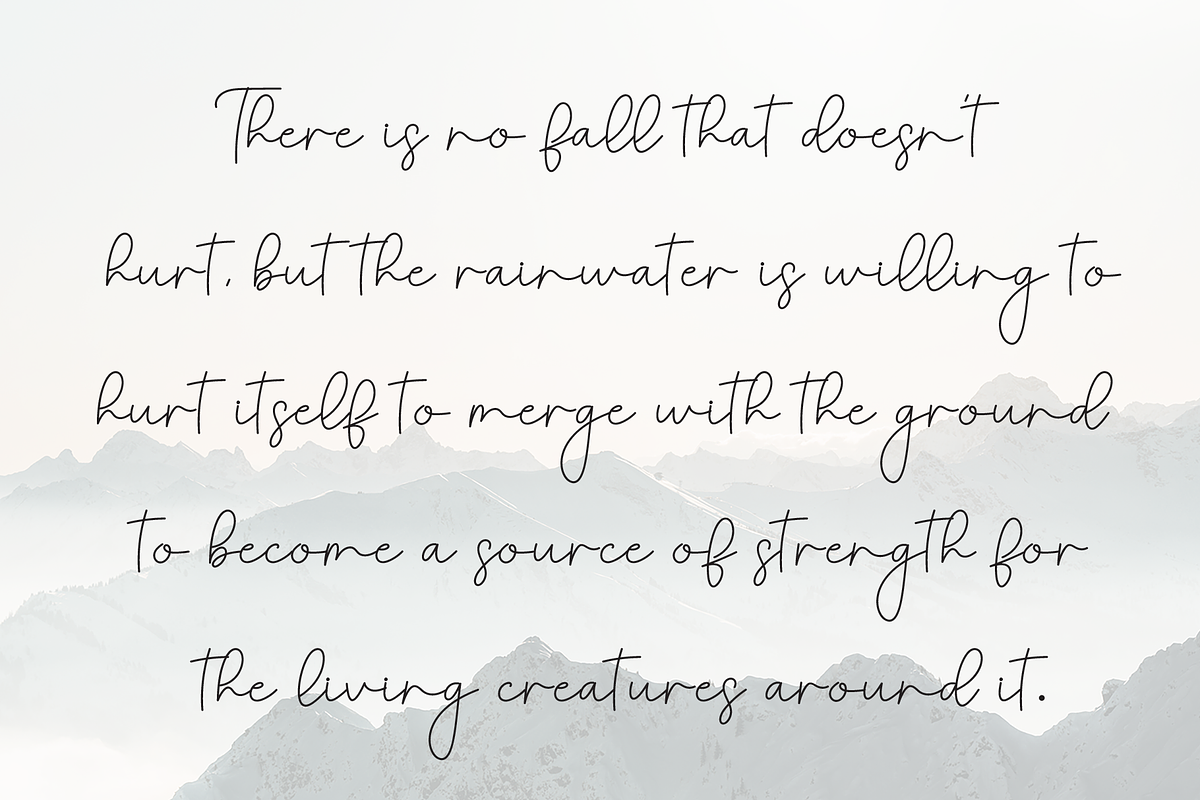 There is no fall that doesn't
hurt, but the rainwater is willing to
hurt itself to merge with the ground
to become a source of strength for
the living creatures around it.